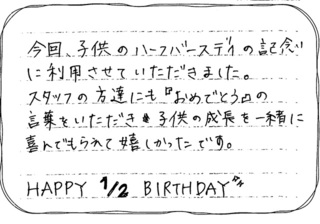 今回、子供のハーフバースデイの記念い
に利用させていただきました。
スタッフの方達にも『おめでとう』の
言葉をいただき 子供の成長を一緒に
喜んでもられて嬉しかったです。
HAPPY 1/2 BIRTHDAY